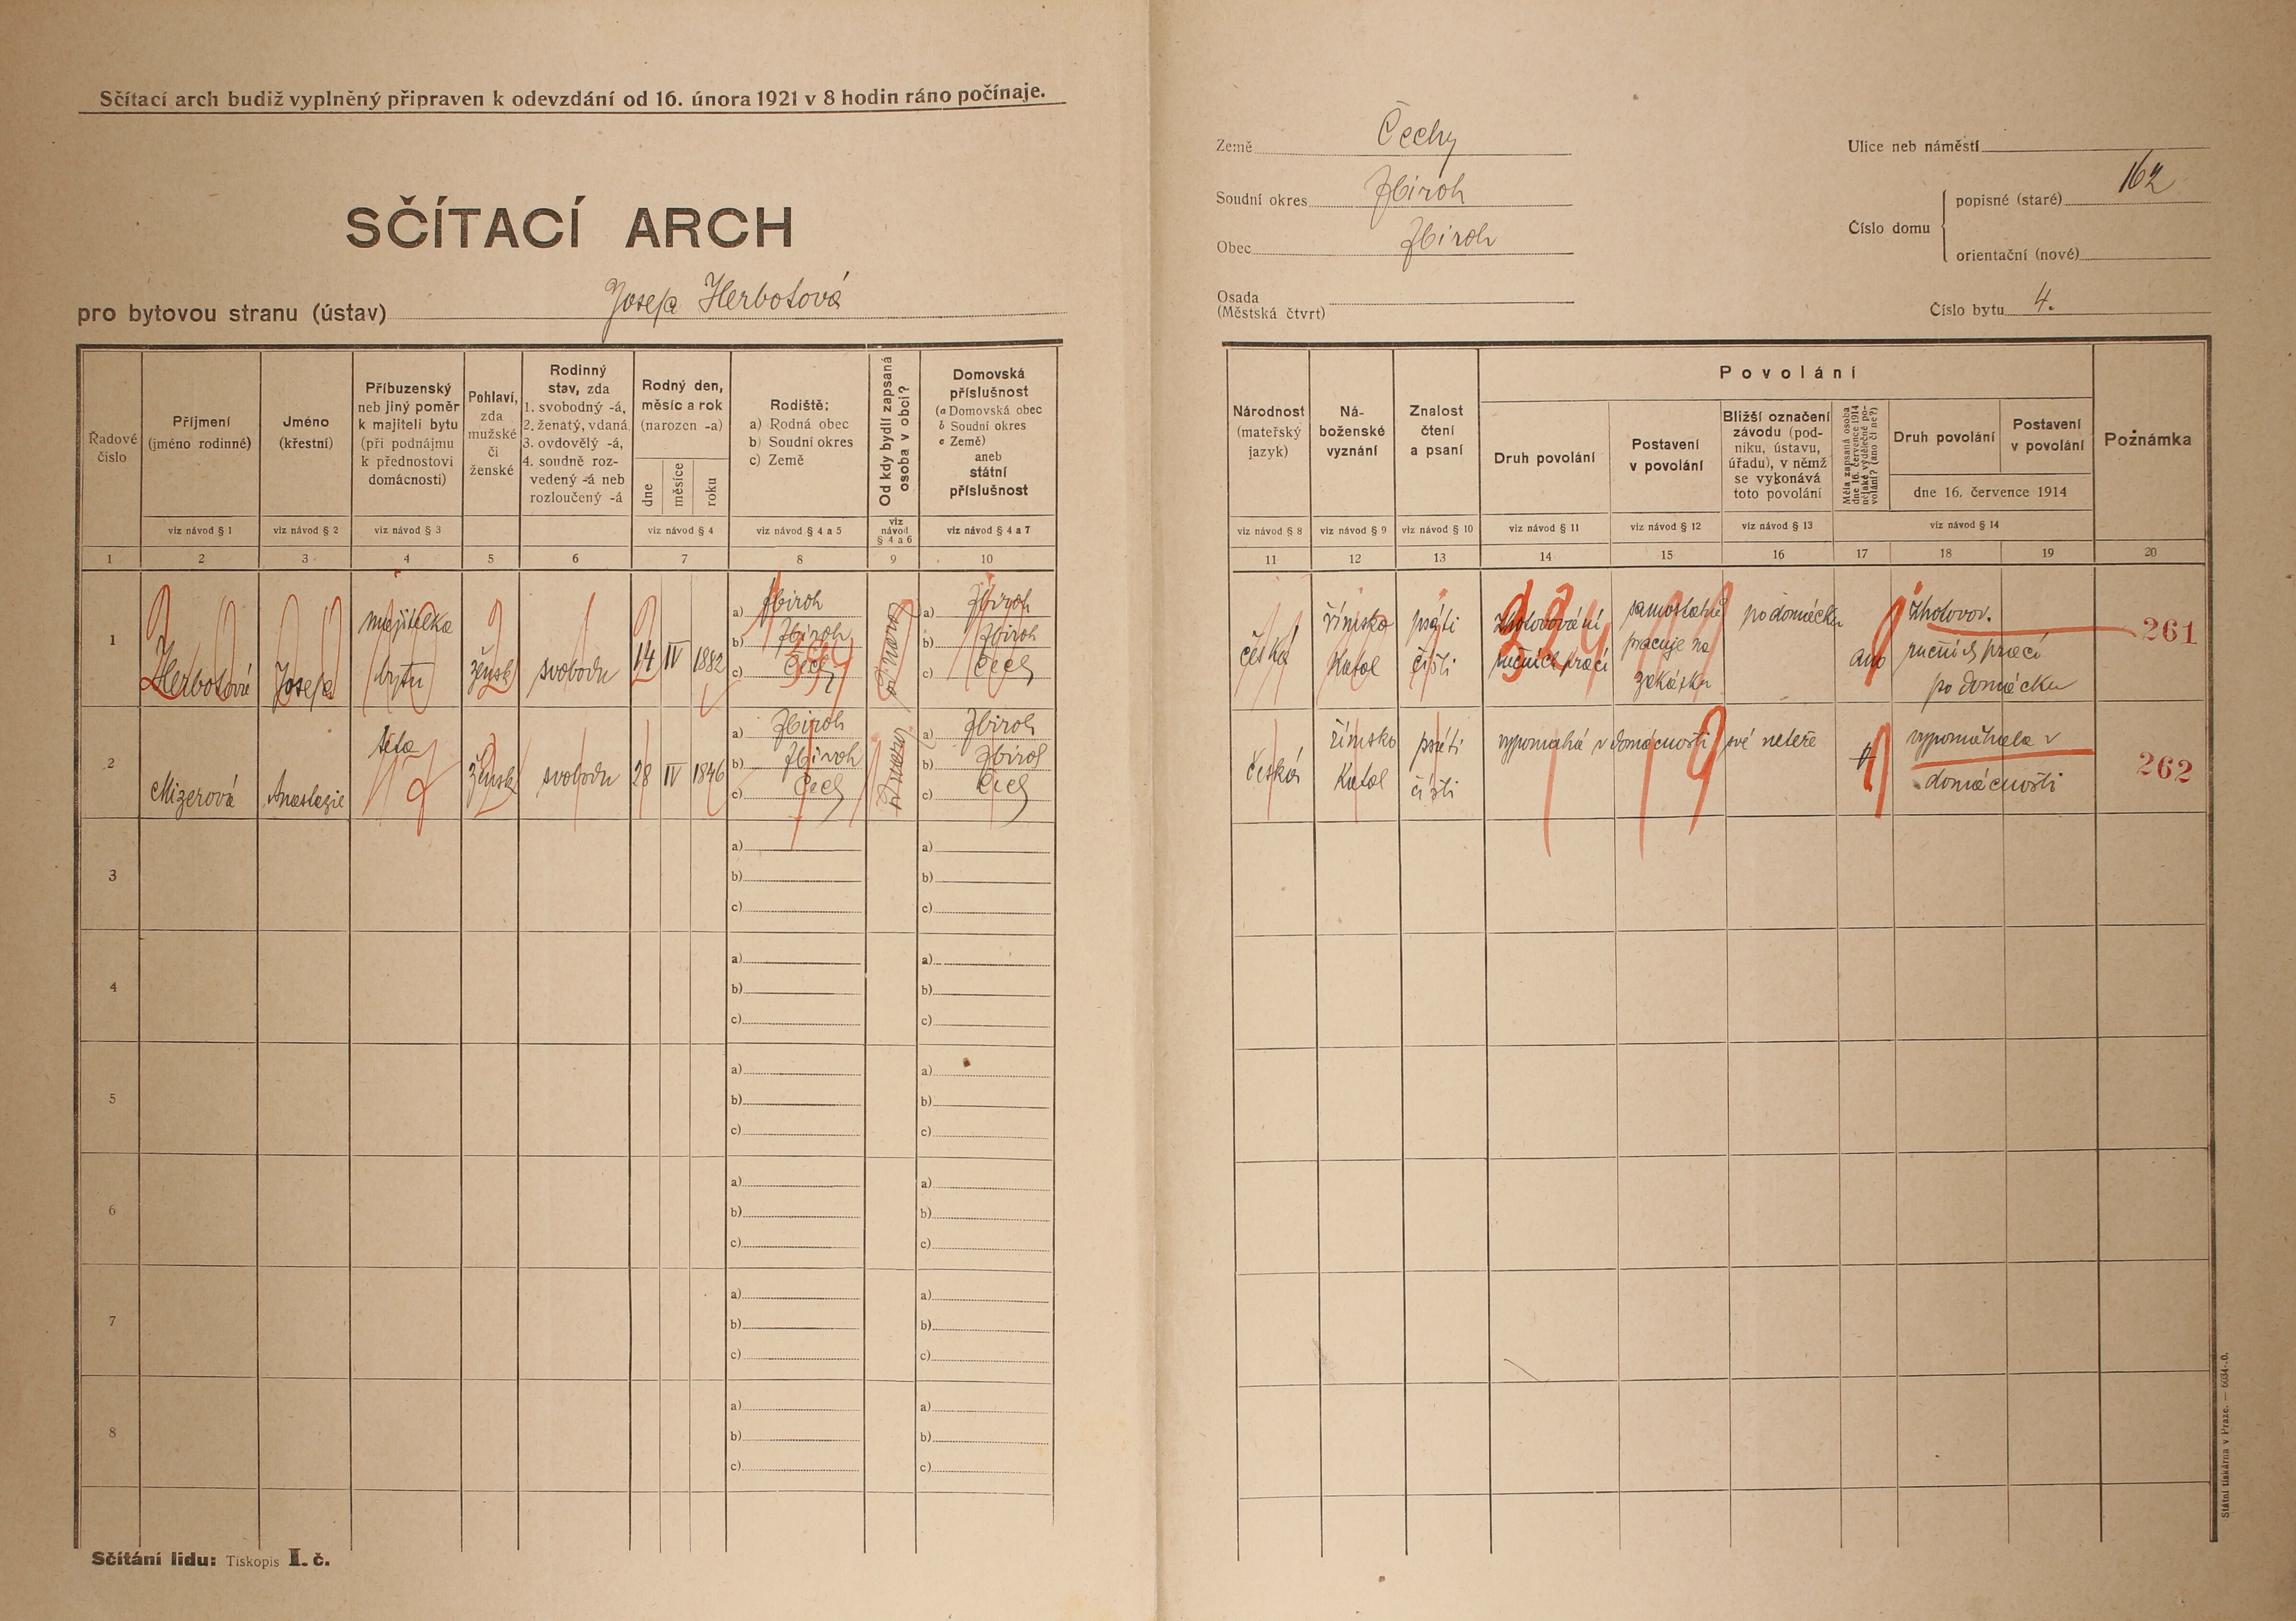 Sčítací arch budiž vyplněný připraven k odevzdání od 16. února 1921 v 8 hodin ráno počínaje.
SČÍTACÍ ARCH
pro bytovou stranu (ústav) Josefa Herbotová
Země Čechy
Soudní okres Zbiroh
Obec Zbiroh
Osada
(Městská čtvrt)
Ulice neb náměstí
Číslo domu
popisné (staré) 162
orientační (nové)
Číslo bytu 4.
Řadové číslo
Příjmení (jméno rodinné)
Jméno (křestní)
Příbuzenský neb jiný poměr k majiteli bytu (při podnájmu k přednostovi domácnosti)
Pohlaví, zda mužské či ženské
Rodinný stav, zda 1. svobodný -á, 2. ženatý, vdaná, 3. ovdovělý -á, 4. soudně rozvedený -á neb rozloučený -á
Rodný den, měsíc a rok (narozen -a)
dne měsíce roku
Rodiště: a) Rodná obec b) Soudní okres c) Země
Od kdy bydlí zapsaná osoba v obci?
Domovská příslušnost (a Domovská obec b Soudní okres c Země) aneb státní příslušnost
viz návod § 1 viz návod § 2 viz návod § 3 viz návod § 4 viz návod § 4 a 5 viz návod § 4 a 6 viz návod § 4 a 7
1 2 3 4 5 6 7 8 9 10
Národnost (mateřský jazyk)
Náboženské vyznání
Znalost čtení a psaní
Povolání
Druh povolání
Postavení v povolání
Bližší označení závodu (podniku, ústavu, úřadu), v němž se vykonává toto povolání
Měla zapsaná osoba dne 16. července 1914 nějaké výdělečné povolání? (ano či ne?)
Druh povolání
Postavení v povolání
dne 16. července 1914
Poznámka
viz návod § 8 viz návod § 9 viz návod § 10 viz návod § 11 viz návod § 12 viz návod § 13 viz návod § 14
11 12 13 14 15 16 17 18 19 20
1 Herbotová Josefa majitelka bytu žensk svobodna 14 IV 1882
a) Zbiroh
b) Zbiroh
c) Čech
od naroz
a) Zbiroh
b) Zbiroh
c) Čech
česká římsko Katol psáti čísti zhotovování ručních prací samostatně pracuje na zakázku po domácku ano zhotovov. ručních prací po domácku 261
2 Mizerová Anastazie teta žensk svobodna 28 IV 1846
a) Zbiroh
b) Zbiroh
c) Čech
a) Zbiroh
b) Zbiroh
c) Čech
česká římsko Katol psáti čísti vypomahá v domácnosti své neteře vypomáhala v domácnosti 262
3
a)
b)
c)
a)
b)
c)
4
a)
b)
c)
a)
b)
c)
5
a)
b)
c)
a)
b)
c)
6
a)
b)
c)
a)
b)
c)
7
a)
b)
c)
a)
b)
c)
8
a)
b)
c)
a)
b)
c)
Sčítání lidu: Tiskopis I. č.